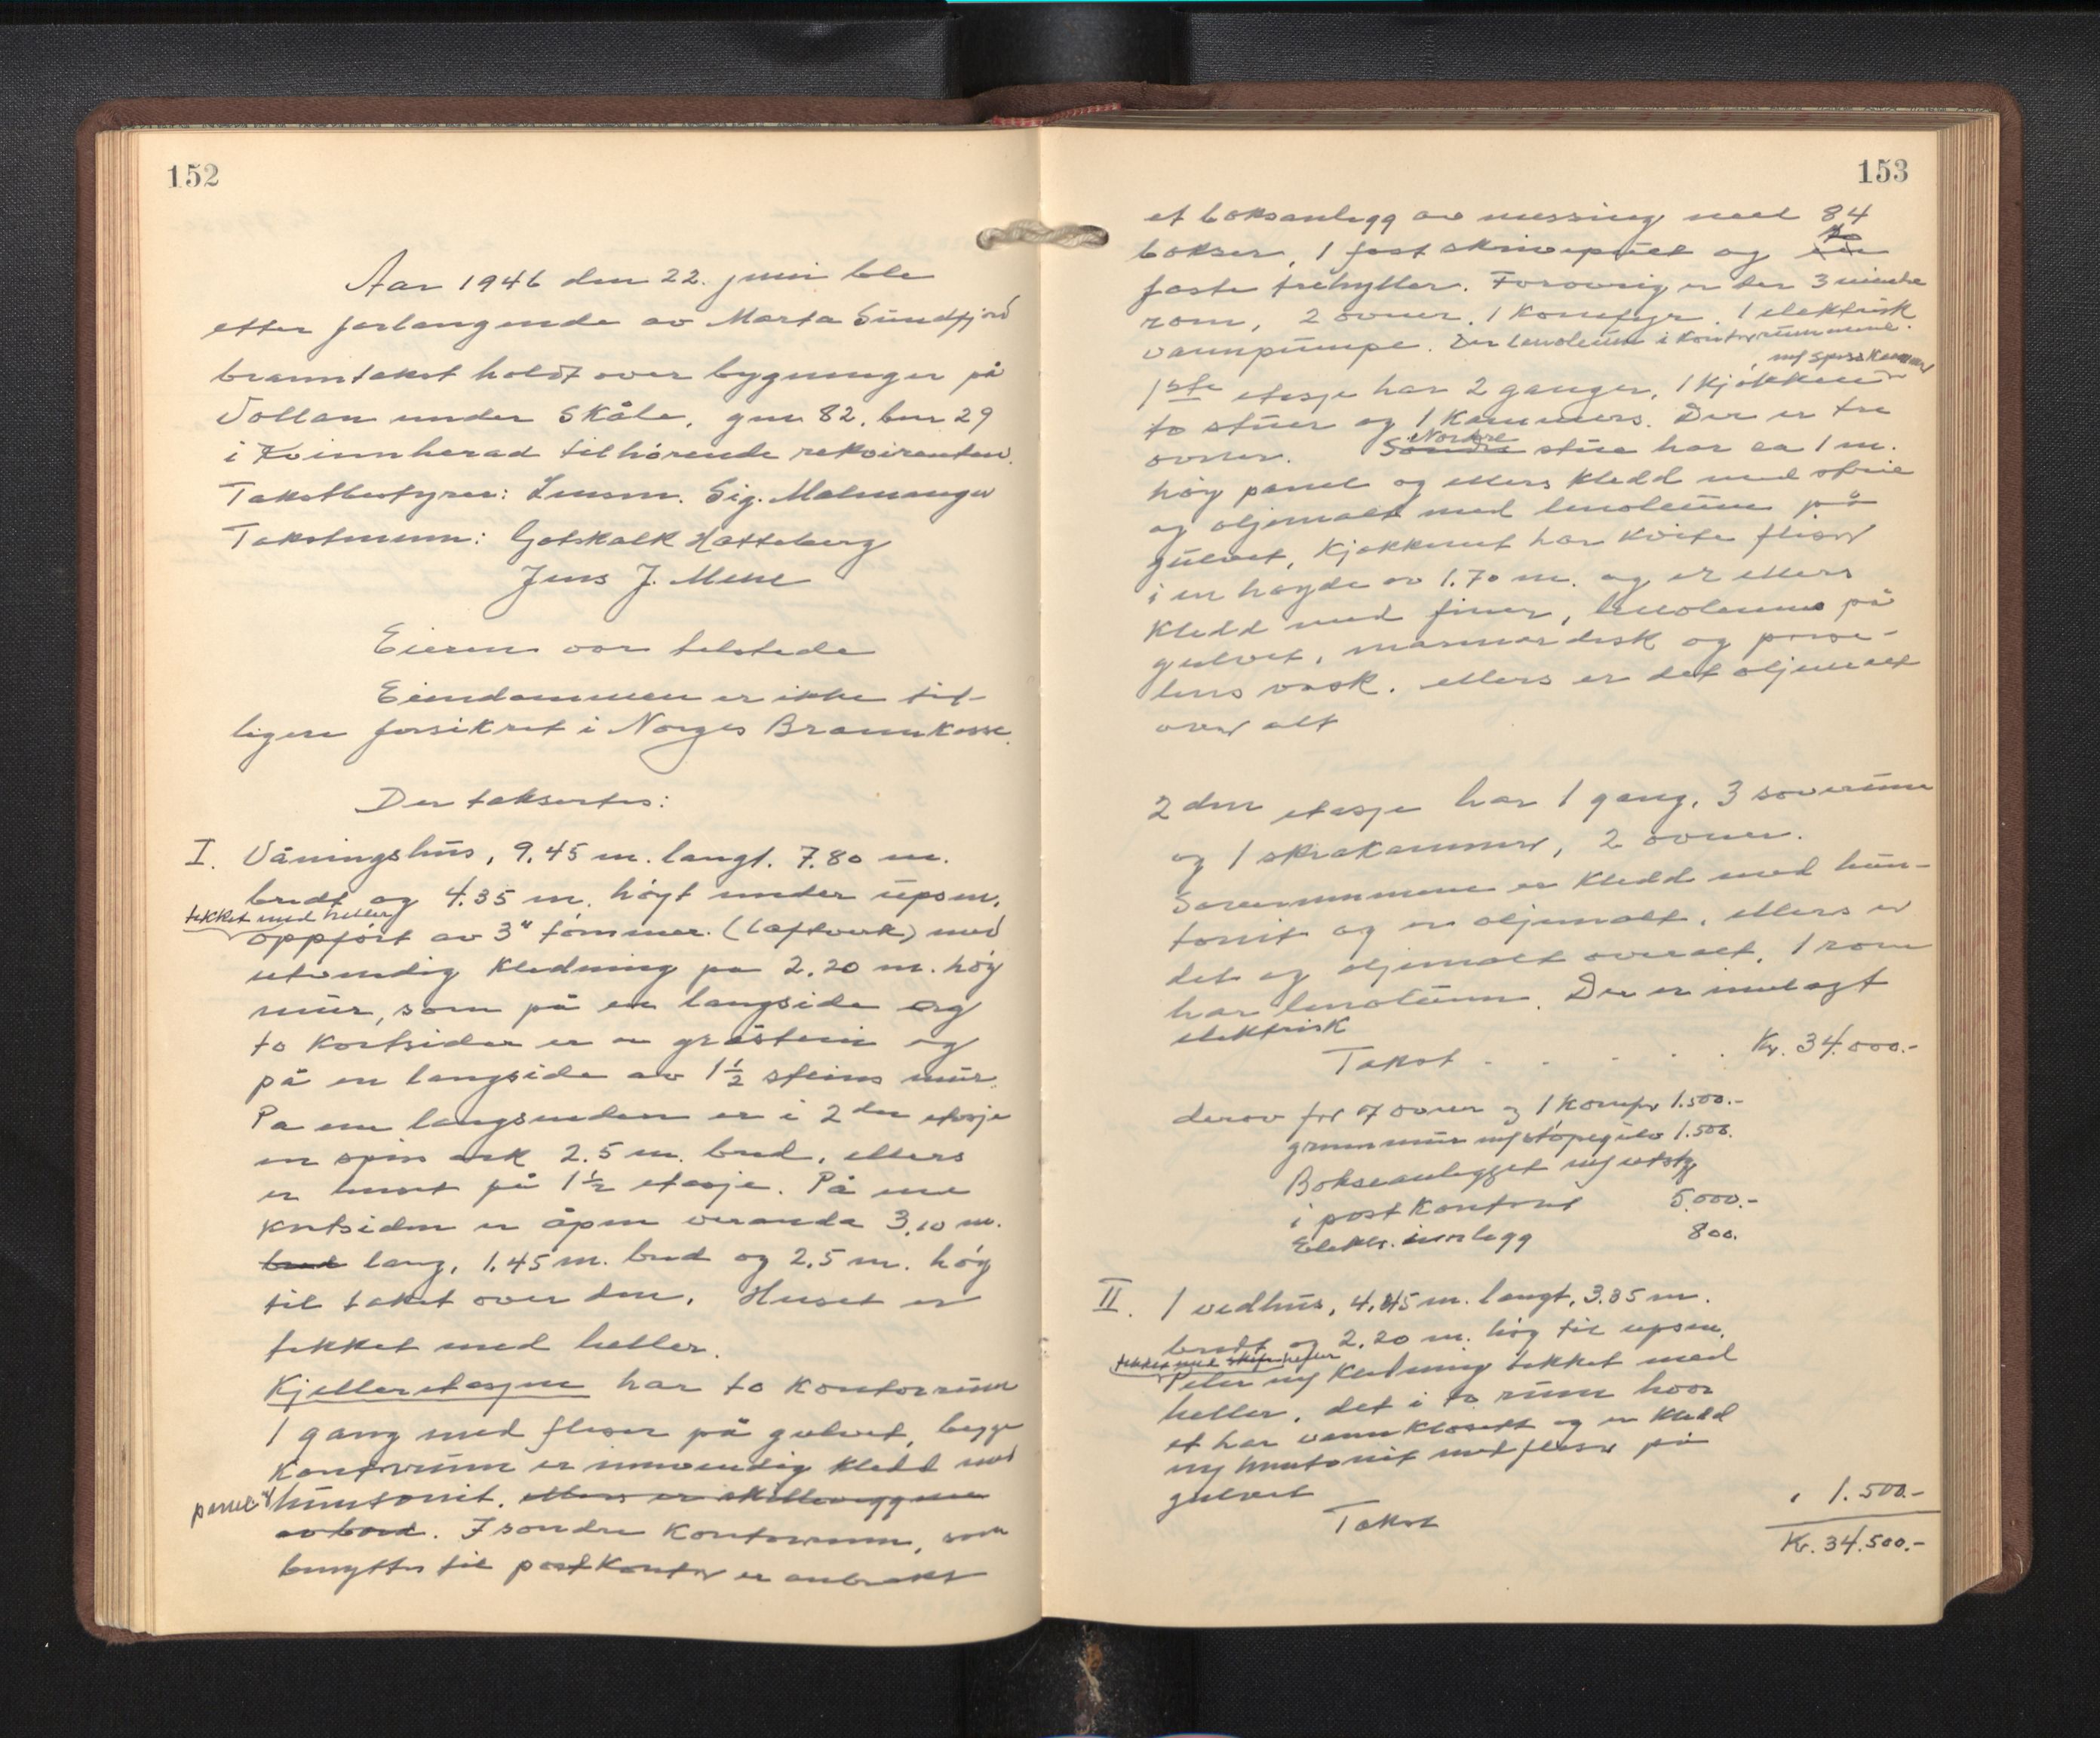 152
Aar 1946 den 22. juni ble
etter forlangende av Marta Sundfjord
branntakst holdt over bygninger på
Vollan under Skåle, gnr 82, bnr 29
i Kvinnherad tilhørende rekvirenten.
Takstbestyrer: Lensm. Sig. Malmanger
Takstmenn: Gotskalk Hatteberg
Jens J. Mehl
Eieren var tilstede
Eiendommen er ikke tid-
ligere forsikret i Norges Brannkasse.
Der taksertes:
I. Våningshus, 9.45 m. langt. 7.80 m.
bredt og 4.35 m. høgt under upsen,
tekket med heller
oppført av 3" tømmer. (Laftverk) med
utvendig kledning på 2.20 m. høg
mur, som på en langside og
to kortsider er av gråstein og
på en langside av 1½ steins mur.
På ene langsenden er i 2den etasje
en spiss ark 2.5 m. bred, ellers
er huset på 1½ etasje. På ene
kortsiden er åpen veranda 3,10 m.
bred lang, 1.45 m. bred og 2.5 m. høg
til taket over den. Huset er
tekket med heller.
Kjelleretasjen har to kontorrum
1 gang med fliser på gulvet, begge
kontorrum er innvendig kledd med
panel & huntonit. ellers er skilleveggene
av bord. I søndre kontorrum, som
benyttes til postkontor er anbrakt
153
et boksanlegg av messing med 84
bokser, 1 fast skrivepult og
to
faste trehyller. Forøvrig er der 3 mindre
rom, 2 ovner, 1 komfyr, 1 elektrisk
vannpumpe. Der linoleum i kontorrummene.
m/ spiskammer
1ste etasje har 2 ganger, 1 kjøkken
to stuer og 1 kammers. Der er tre
ovner. Søndre stue har ca 1 m.
Nordre
høg panel og ellers kledd med strie
og oljemalt med linoleum på
gulvet, Kjøkkenet har kvite fliser
i en høgde av 1.70 m. og er ellers
kledd med finer, linoleum på
gulvet, marmordisk og porse-
lens vask. ellers er det oljemalt
over alt
2den etasje har 1 gang, 3 soverum
og 1 skråkammer, 2 ovner.
Soverummene er kledd med hun-
tonit og er oljemalt, ellers er
det og oljemalt overalt. 1 rom
har linoleum. Der er innlagt
elektrisk
Takst - . . . . Kr. 34.000.-
derav for 7 ovner og 1 komfyr 1.500.-
grunnmur m/støpegulv 1.500.
Bokseanlegget m/utstyr
i postkontoret 5.000.-
Elektr. innlegg 800.
II. 1 vedhus, 4,45 m. langt, 3.35 m.
bredt og 2,20 m. høg til upsen.
tekket med skifer heller
Peler m/ kledning tekket med
heller, det i to rum hvor
et har vannklosett og er kledd
m/ huntonit med fliser på
gulvet
Takst " 1.500.-
Kr. 34.500.-